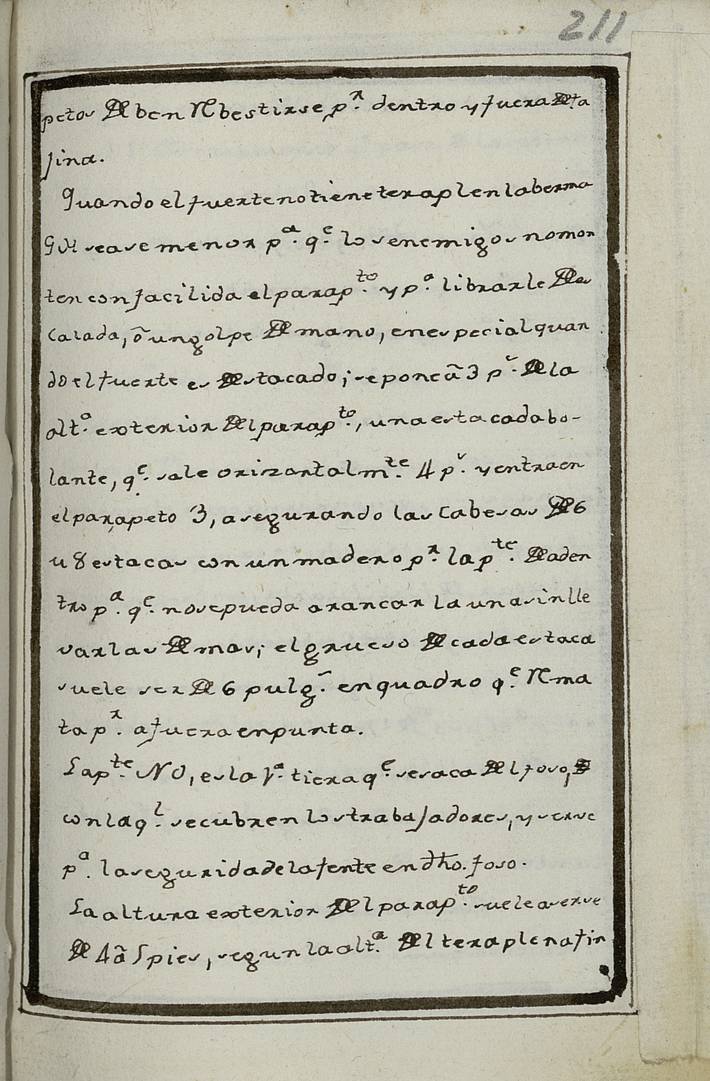 211
petos Deben Rebestirse p.r dentro y fuera De fa
jina.
Quando el fuerte no tiene teraplen la berma
Que sea se menor p.a q.e los enemigos no mon
ten con facilida el parap.to y p.a librarle De es
Calada, ô un golpe De mano, en especial quan
do el fuerte es Destacado; se pone â 3 p.s De la
alt.a exterior Del parap.to, una estacada bo-
lante, q.e sale orizontalm.te 4 p.s y entra en
el parapeto 3, asegurando las Cabesas De 6
u 8 estacas con un madero p.r la p.te De aden
tro p.a q.e no se pueda arancar la una sin lle
var las De mas; el grueso De cada estaca
suele ser De 6 pulg.s en quadro q.e Rema
ta p.r afuera en punta.
La p.te NO, es la 1.a tiera q.e se saca Del foso,
con la q.l se cubren los trabajadores, y serve
p.a la seguridad de la jente en dho. foso.
La altura exterior Del parap.to suele aserse
De 4 â 5 pies, segun la alt.a Del teraplen a fin